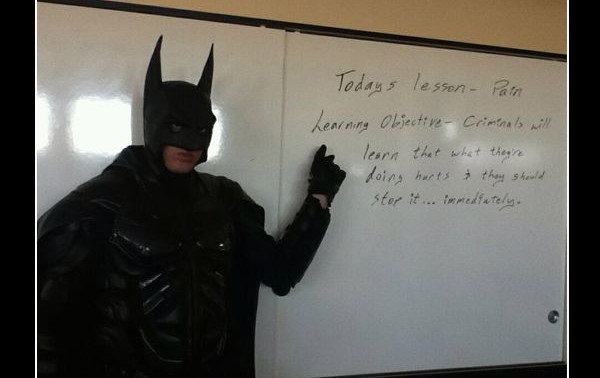 Today's lesson - Pain
Learning Objective - Criminals will
learn that what they're
doing hurts & they should
stop it... immediately.